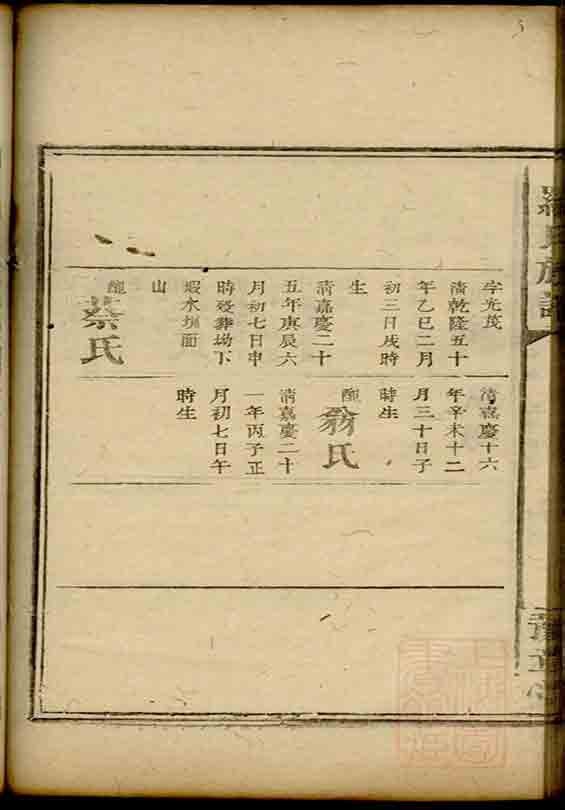 羅氏族譜
豫章堂
字光茂
清乾隆五十
年乙巳二月
初三日戌時
生
清嘉慶二十
五年庚辰六
月初七日申
時歿葬坳下
蝦水圳面
山
配
蔡氏
清嘉慶十六
年辛未十二
月三十日子
時生
配
翁氏
清嘉慶二十
一年丙子正
月初七日午
時生